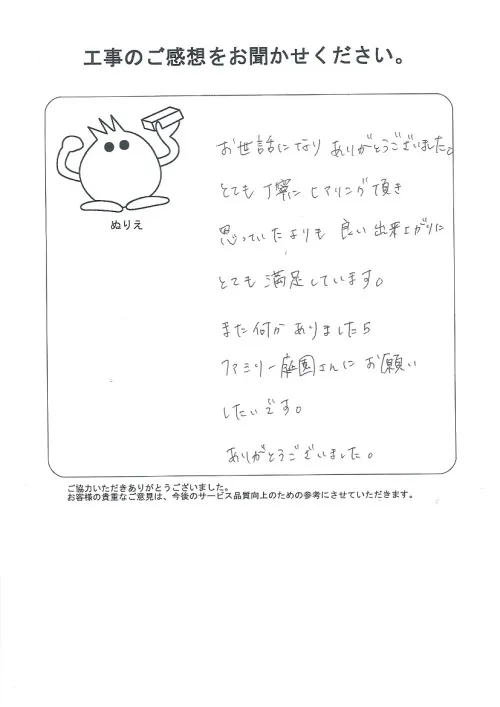 工事のご感想をお聞かせください。
お世話になり ありがとうございました。
とても 丁寧に ヒアリング 頂き
思っていたよりも 良い 出来上がりに
とても 満足しています。
また何か ありましたら
ファミリー庭園さんに お願い
したいです。
ありがとうございました。
ぬりえ
ご協力いただきありがとうございました。
お客様の貴重なご意見は、今後のサービス品質向上のための参考にさせていただきます。